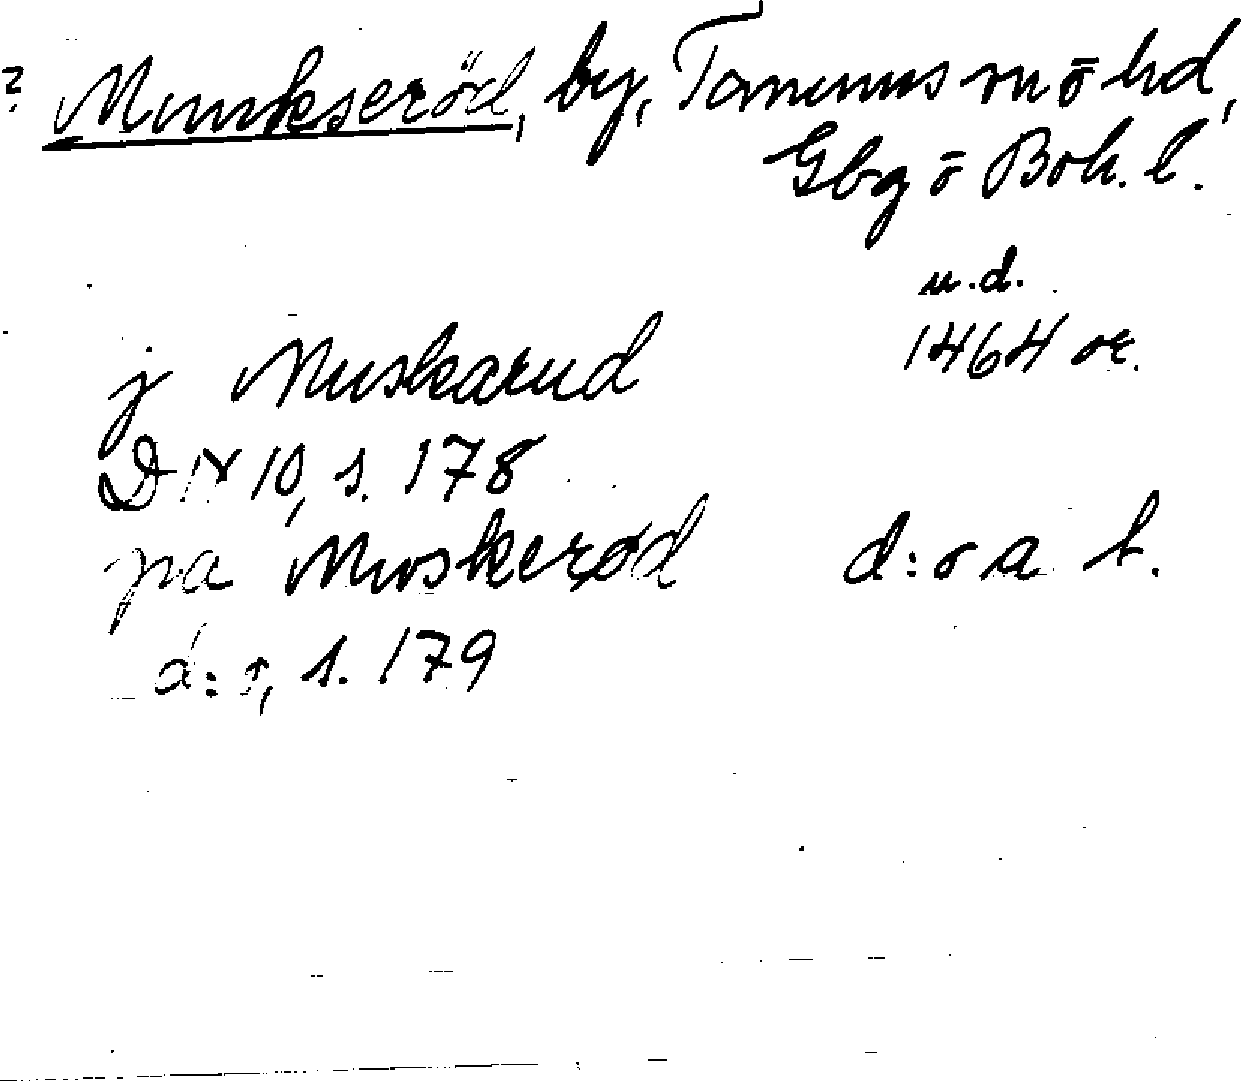 ? Munkseröd, by, Tanums sn o hd,
Gbg o Boh. l.
u.d.
j Muskarud 1464 or.
DN 10, s. 178
pa Muskerød d:o a b.
d:o, s. 179